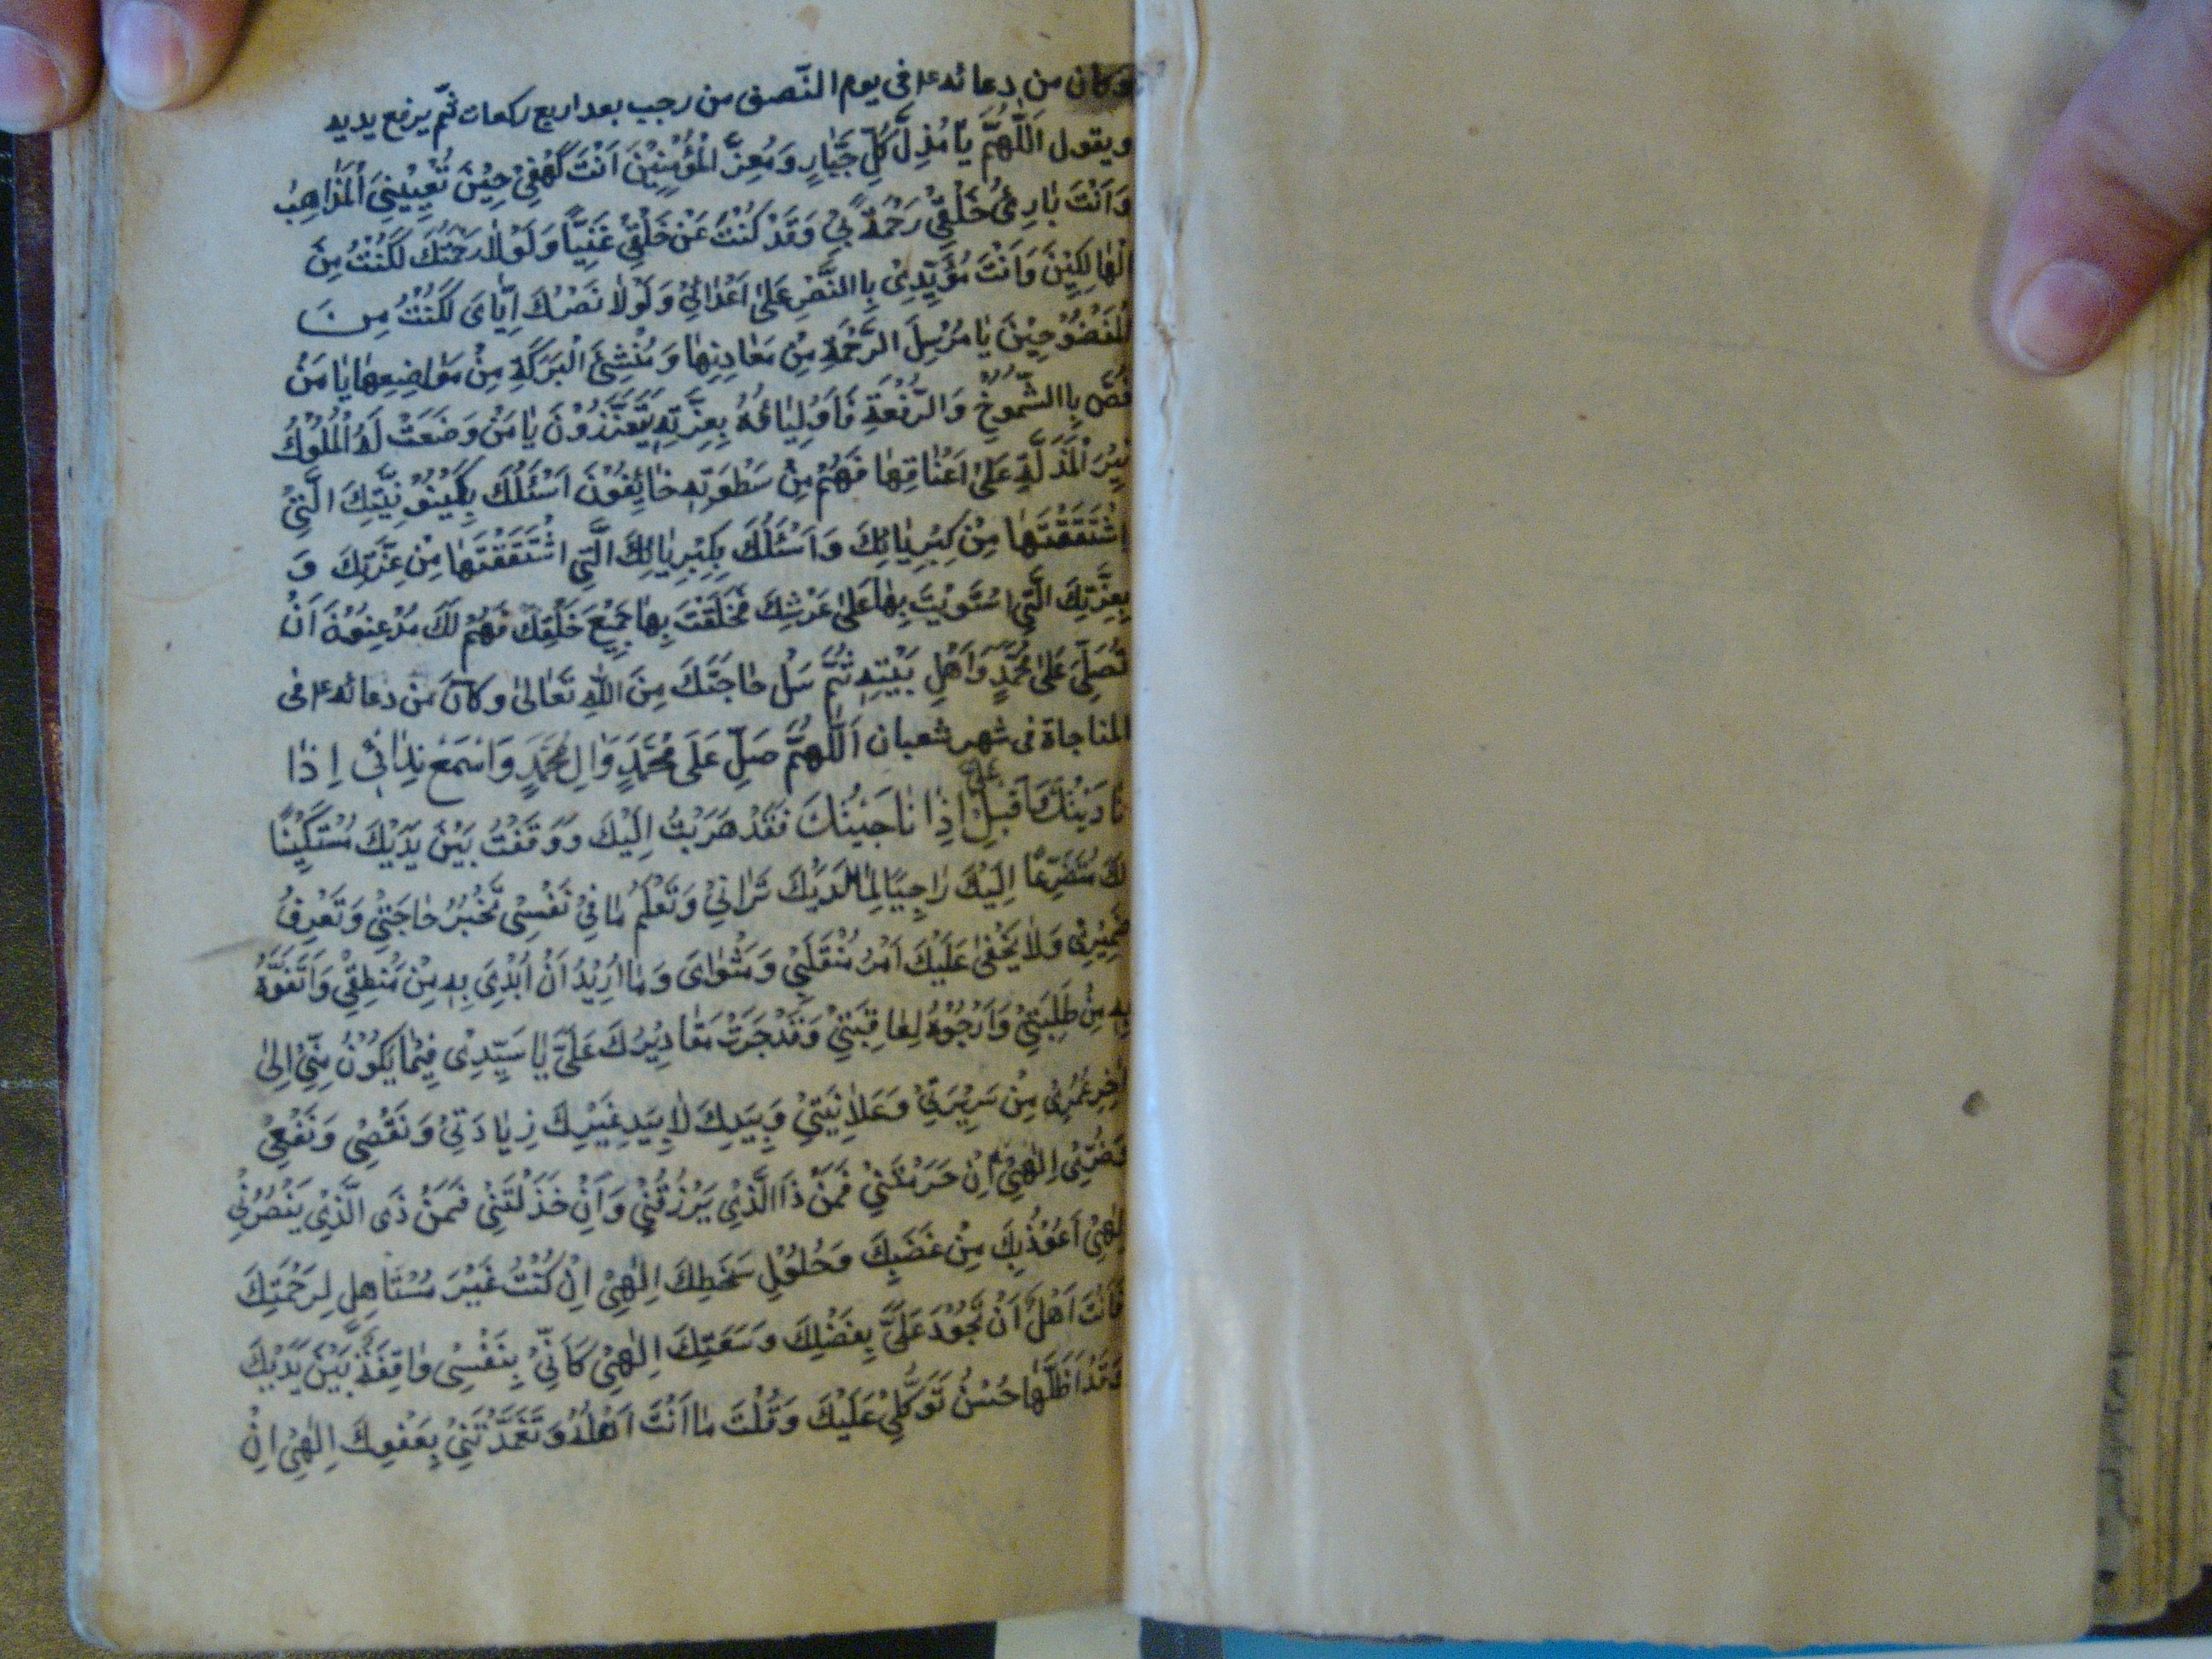 وكان من دعائه ع في يوم النّصف من رجب بعد اربع ركعات ثمّ يرفع يديه
ويقول اَللّٰهُمَّ يٰا مُذِلَّ كُلِّ جَبّٰارٍ وَمُعِزَّ الْمُؤْمِنِيْنَ اَنْتَ كَهْفِيْ حِيْنَ تُعْيِيْنِيَ الْمَذٰاهِبُ
وَاَنْتَ بٰارِئُ خَلْقِيْ رَحْمَةً بِيْ وَقَدْ كُنْتَ عَنْ خَلْقِيْ غَنِيّاً وَلَوْلاٰ رَحْمَتُكَ لَكُنْتُ مِنَ
الْهٰالِكِيْنَ وَاَنْتَ مُؤَيِّدِيْ بِاالنَّصْرِ عَلىٰ اَعْدٰائِيْ وَلَوْلاٰ نَصْرُكَ اِيّٰايَ لَكُنْتُ مِنَ
الْمَفْضُوْحِيْنَ يٰا مُرْسِلَ الرَّحْمَةِ مِنْ مَعٰادِنِهٰا وَمُنْشِئَ الْبَرَكَةِ مِنْ مَوٰاضِعِهٰا يٰا مَنْ
خَصَّ بِاالشُّمُوْخِ وَالرِّفْعَةِ فَاَوْلِيٰاؤُهُ بِعِزَّتِهِ يَتَعَزَّزُوْنَ يٰا مَنْ وَضَعَتْ لَهُ الْمُلُوْكُ
نِيْرَ الْمَذَلَّةِ عَلىٰ اَعْنٰاقِهٰا فَهُمْ مِنْ سَطْوَتِهِ خٰائِفُوْنَ اَسْئَلُكَ بِكَيْنُوْنِيَّتِكَ الَّتِيْ
اشْتَقَقْتَهٰا مِنْ كِبْرِيٰائِكَ وَاَسْئَلُكَ بِكِبْرِيٰائِكَ الَّتِي اشْتَقَقْتَهٰا مِنْ عِزَّتِكَ وَ
بِعِزَّتِكَ الَّتِي اسْتَوَيْتَ بِهٰا عَلىٰ عَرْشِكَ فَخَلَقْتَ بِهٰا جَمِيْعَ خَلْقِكَ فَهُمْ لَكَ مُذْعِنُوْنَ اَنْ
تُصَلِّيَ عَلىٰ مُحَمَّدٍ وَاَهْلِ بَيْتِهِ ثُمَّ سَلْ حٰاجَتَكَ مِنَ اللّٰهِ تَعٰالىٰ وكانَ من دعائه ع في
المناجاة في شهر شعبان اَللّٰهُمَّ صَلِّ عَلَى مُحَمَّدٍ وَاٰلِ مُحَمَّدٍ وَاسْمَعْ نِدٰائِيْ اِذٰا
نٰادَيْتُكَ وَاَقْبِلْ عليّ اِذٰا نٰاجَيْتُكَ فَقَدْ هَرَبْتُ اِلَيْكَ وَوَقَفْتُ بَيْنَ يَدَيْكَ مُسْتَكِيْنًا
لَكَ مُتَضَرِّعًا اِلَيْكَ رٰاجِيًا لِمٰا لَدَيْكَ تَرٰانِيْ وَتَعْلَمُ مٰا فِيْ نَفْسِيْ تَخْبُرُ حٰاجَتِيْ وَتَعْرِفُ
ضَمِيْرِيْ وَلاٰ يَخْفىٰ عَلَيْكَ اَمْرُ مُنْقَلَبِيْ وَمَثْوٰايَ وَمٰا اُرِيْدُ اَنْ اُبْدِيَ بِهِ مِنْ مَنْطِقِيْ وَاَتَفَوَّهُ
بِهِ مِنْ طَلِبَتِيْ وَاَرْجُوْهُ لِعٰاقِبَتِيْ وَقَدْ جَرَتْ مَقٰادِيْرُكَ عَلَيَّ يٰا سَيِّدِيْ فِيْمٰا يَكُوْنُ مِنِّيْ اِلىٰ
اٰخِرِ عُمْرِيْ مِنْ سَرِيْرَتِيْ وَعَلاٰنِيَتِيْ وَبِيَدِكَ لاٰ بِيَدِ غَيْرِكَ زِيٰادَتِيْ وَنَقْصِيْ وَنَفْعِيْ
وَضُرِّيْ اِلٰهِيْ اِنْ حَرَمْتَنِيْ فَمَنْ ذَا الَّذِيْ يَرْزُقُنِيْ وَاِنْ خَذَلْتَنِيْ فَمَنْ ذَى الَّذِيْ يَنْصُرُنِيْ
اِلٰهِيْ اَعُوْذُ بِكَ مِنْ غَضَبِكَ وَحُلُوْلِ سَخَطِكَ اِلٰهِيْ اِنْ كُنْتُ غَيْرَ مُسْتَاهِلٍ لِرَحْمَتِكَ
فَاَنْتَ اَهْلٌ اَنْ تَجُوْدَ عَلَيَّ بِفَضْلِكَ وَسَعَتِكَ اِلٰهِيْ كَاَنِّيْ بِنَفْسِيْ وٰاقِفَةً بَيْنَ يَدَيْكَ
وَقَدْ اَظَلَّهٰا حُسْنُ تَوَكُّلِيْ عَلَيْكَ وَقُلْتَ مٰا اَنْتَ اَهْلُهُ وَتَغَمَّدْتَنِيْ بِعَفْوِكَ اِلٰهِيْ اِنْ